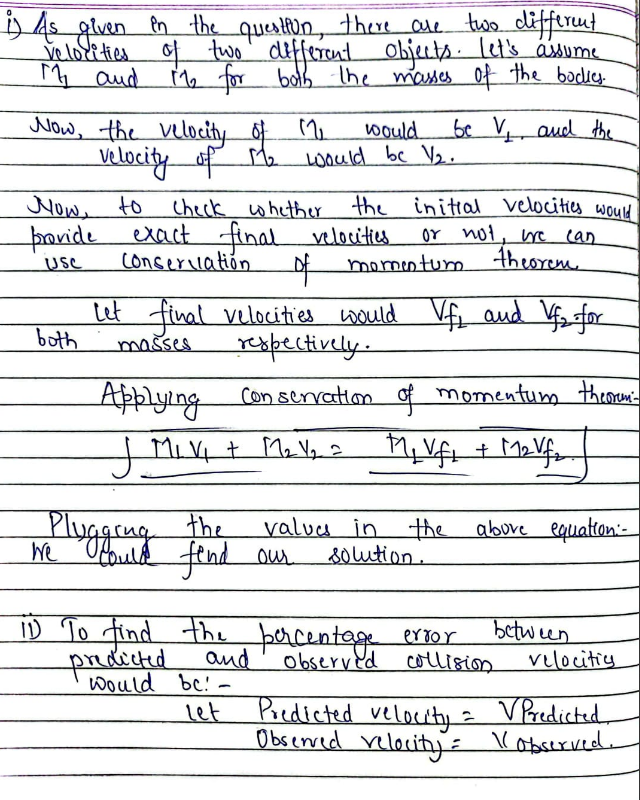 i) As given in the question, there are two different
velocities of two different objects. let's assume
M1 and M2 for both the masses of the bodies.
Now, the velocity of M1 would be V1. and the
velocity of M2 would be V2.
Now, to check whether the initial velocities would
provide exact final velocities or not, we can
use conservation of momentum theorem
Let final velocities would Vf1 and Vf2 for
both masses respectively.
Applying conservation of momentum theorem:-
M1V1 + M2V2 = M1Vf1 + M2Vf2
Plugging the values in the above equation:-
We could find our solution.
ii) To find the percentage error between
predicted and observed collision velocities
would be:-
Let Predicted velocity = VPredicted.
Observed velocity = Vobserved.